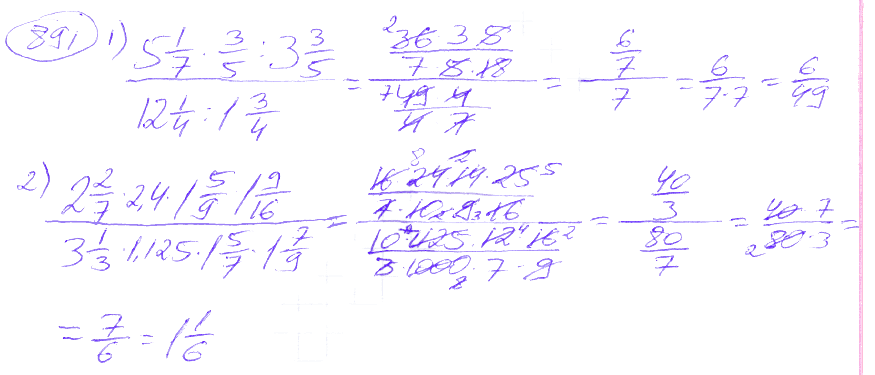 891 1) (5 1/7 · 3/5 : 3 3/5) / (12 1/4 : 1 3/4) = ((36·3·5)/(7·5·18)) / ((49·4)/(4·7)) = (6/7)/7 = 6/(7·7) = 6/49
2) (2 2/7 · 2,4 · 1 5/9 · 1 9/16) / (3 1/3 · 1,125 · 1 5/7 · 1 7/9) = ((16·24·14·25)/(7·10·9·16)) / ((10·1125·12·16)/(3·1000·7·9)) = (40/3)/(80/7) = (40·7)/(80·3) =
= 7/6 = 1 1/6